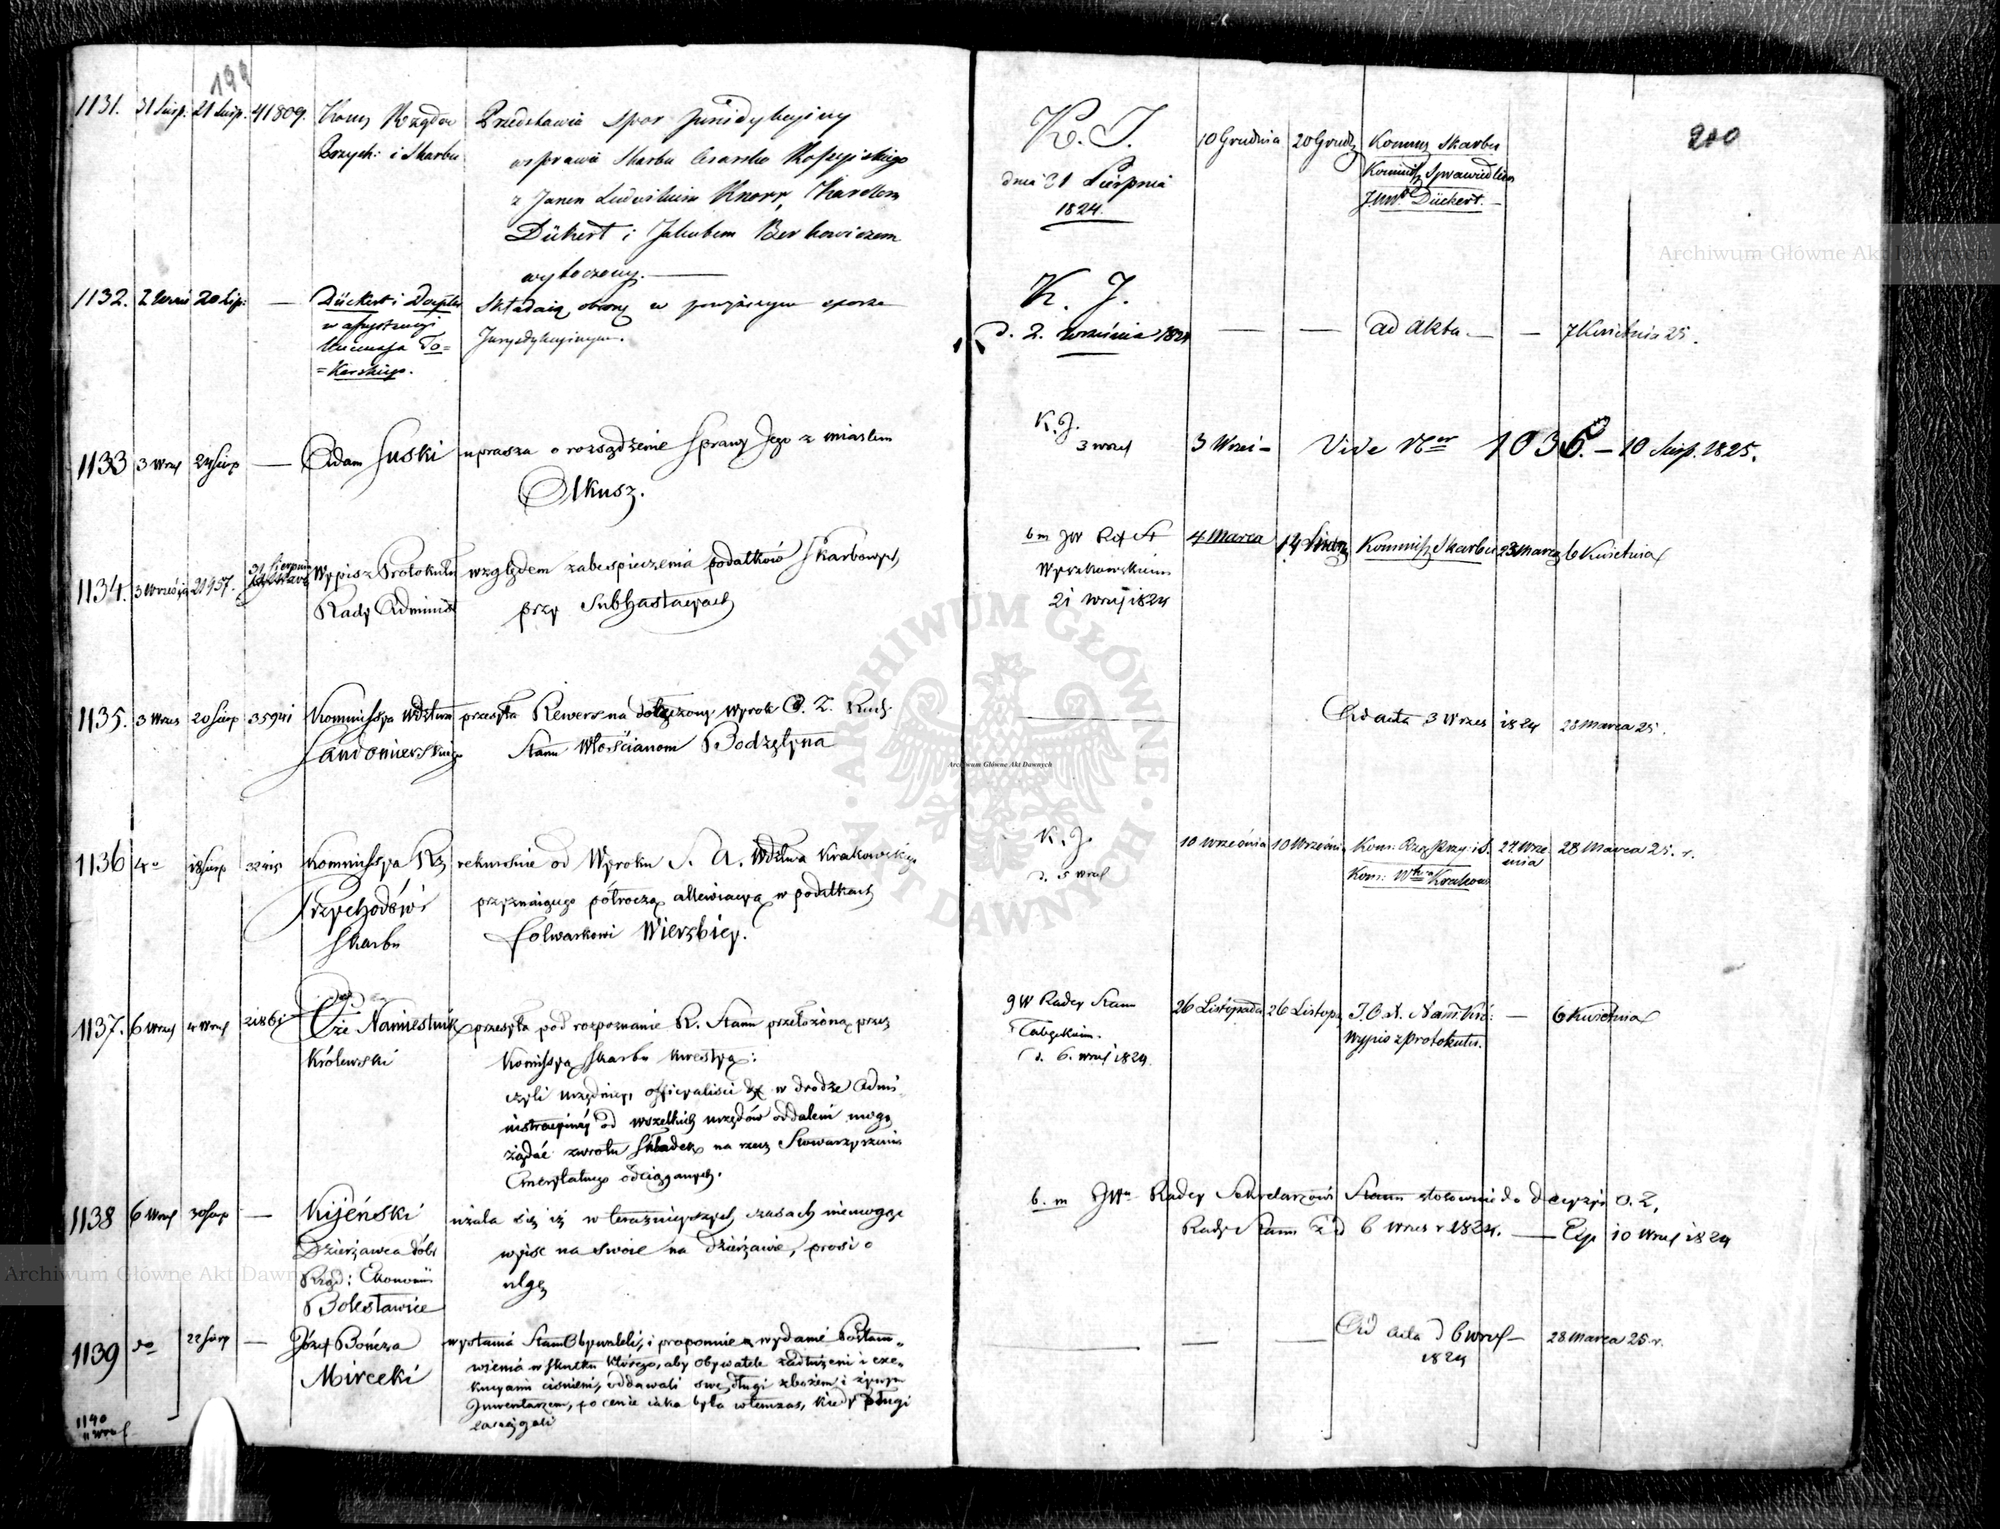 199
1131. 31 Sierp. 21 Sierp. 41809. Kom. Rządow Przedstawia Spor Jurisdykcyiny
Przych: i Skarbu w sprawie Skarbu Cesarsko Rossyiskiego
z Janem Ludwikiem Knorr, Karolem
Dückert i Jakubem Berkowiczem
wytoczony.
K. J. 10 Grudnia 20 Grud. Kommis Skarbu
Kommis Sprawiedliw
dnia 31 Sierpnia Dückert.
1824.
200
1132. 2 Wrześ 20 Sierp: — Dückert i Składaią obronę w powyższym sporze
w assystencyi Jurysdykcyinym.
Mecenasa To=
=karskiego.
K. J.
d. 2. Września 1824 — — ad akta. — 7 Kwietnia 25.
1133 3 Wrześ 24 Sierp — Adam Suski uprasza o rozsądzenie Sprawy Jego z miastem
Olkusz.
K. J.
3 wrześ 3 Wrześ — Vide Ner 1036. — 10 Sierp. 1825.
1134. 3 Września 21957. 31 Sierpnia Wypis z Protokułu względem zabespieczenia podatków Skarbowych
Rady Administ przy Subhastacyach
bm JW Ref St 4 Marca 14 Kommiss Skarbu 23 Marca 6 Kwietnia
Wyczechowskiem
21 Wrześ 1824
1135. 3 Wrześ 20 Sierp 35941 Kommissya Wdztwa przesyła Rewers na dołączony Wyrok
Sandomierskiego Stanu Włościanom Bodzętyna
Ad acta 3 Wrześ 1824 28 Marca 25.
1136 4o 18 Sierp 32415 Kommissya Rz rekursuie od Wyroku S. A. Wdztwa Krakowskiego
Przychodów i przyznaiącego półroczą allewiacyą w podatkach
Skarbu folwarkowi Wierzbicy.
K. J. 10 Września 10 Września Kom: Rzą Przy: i S. 22 Wrze 28 Marca 25. r.
śnia
d. 5 Wrześ Kom: Wdztwa Krakow
1137. 6 Wrześ 4 Wrześ 21861 Xże Namiestnik przesyła pod rozpoznanie R. Stanu przełożoną przez
Królewski Kommissyą Skarbu kwestyą:
czyli urzędnicy, officyaliści w drodze Admi
nistracyinéy od wszelkich urzędów oddaleni mogą
żądać zwrotu Składek na rzecz Stowarzyszenia
Emerytalnego odciąganych.
JW Radcy Stanu 26 Listopada 26 Listop. J. O. X. Namk Kró: — 6 Kwietnia
Wypis z protokułu.
d. 6. wrześ 1824.
1138 6 Wrześ 30 Sierp — Kijeński użala się iż w teraźnieyszych czasach niemogąc
Dzierżawca dóbr wyisć na swoie na dzierżawie, prosi o
Rząd: Ekonomii ulgę
Bolesławice
b. m JWu Radcy Sekretarzowi Stanu stosownie do decyzyi O. Z.
Rady Stanu z d 6 Wrześ r 1824. — Exp 10 Wrześ 1824
1139 do 22 Sierp — Józef Bończa wystawia Stan Obywateli, i proponuie wydanie Postano=
Mirecki wienia w skutku którego, aby Obywatele zadłużeni i exe=
kucyami ciśnieni, oddawali swe długi zbożem i żywym
Inwentarzem, po cenie iaka była wtenczas, kiedy długi
zaciągali
— — Ad acta d 6 wrześ — 28 Marca 25 r.
1824
1140
11 Wrześ
Archiwum Główne Akt Dawnych
Archiwum Główne Akt Dawnych
Archiwum Główne Akt Dawnych
ARCHIWUM GŁÓWNE AKT DAWNYCH